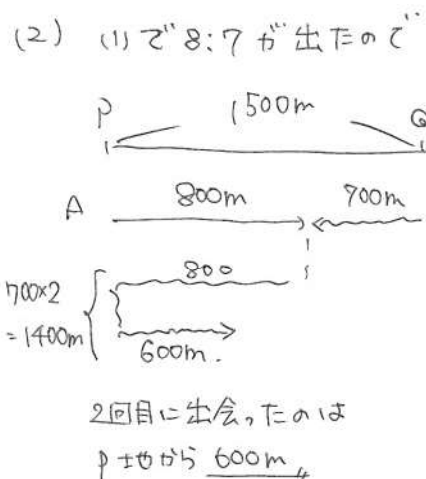 (2) (1)で8:7が出たので
P 1500m Q
A 800m 700m
800
700×2
=1400m
600m.
2回目に出会ったのは
P地から 600m